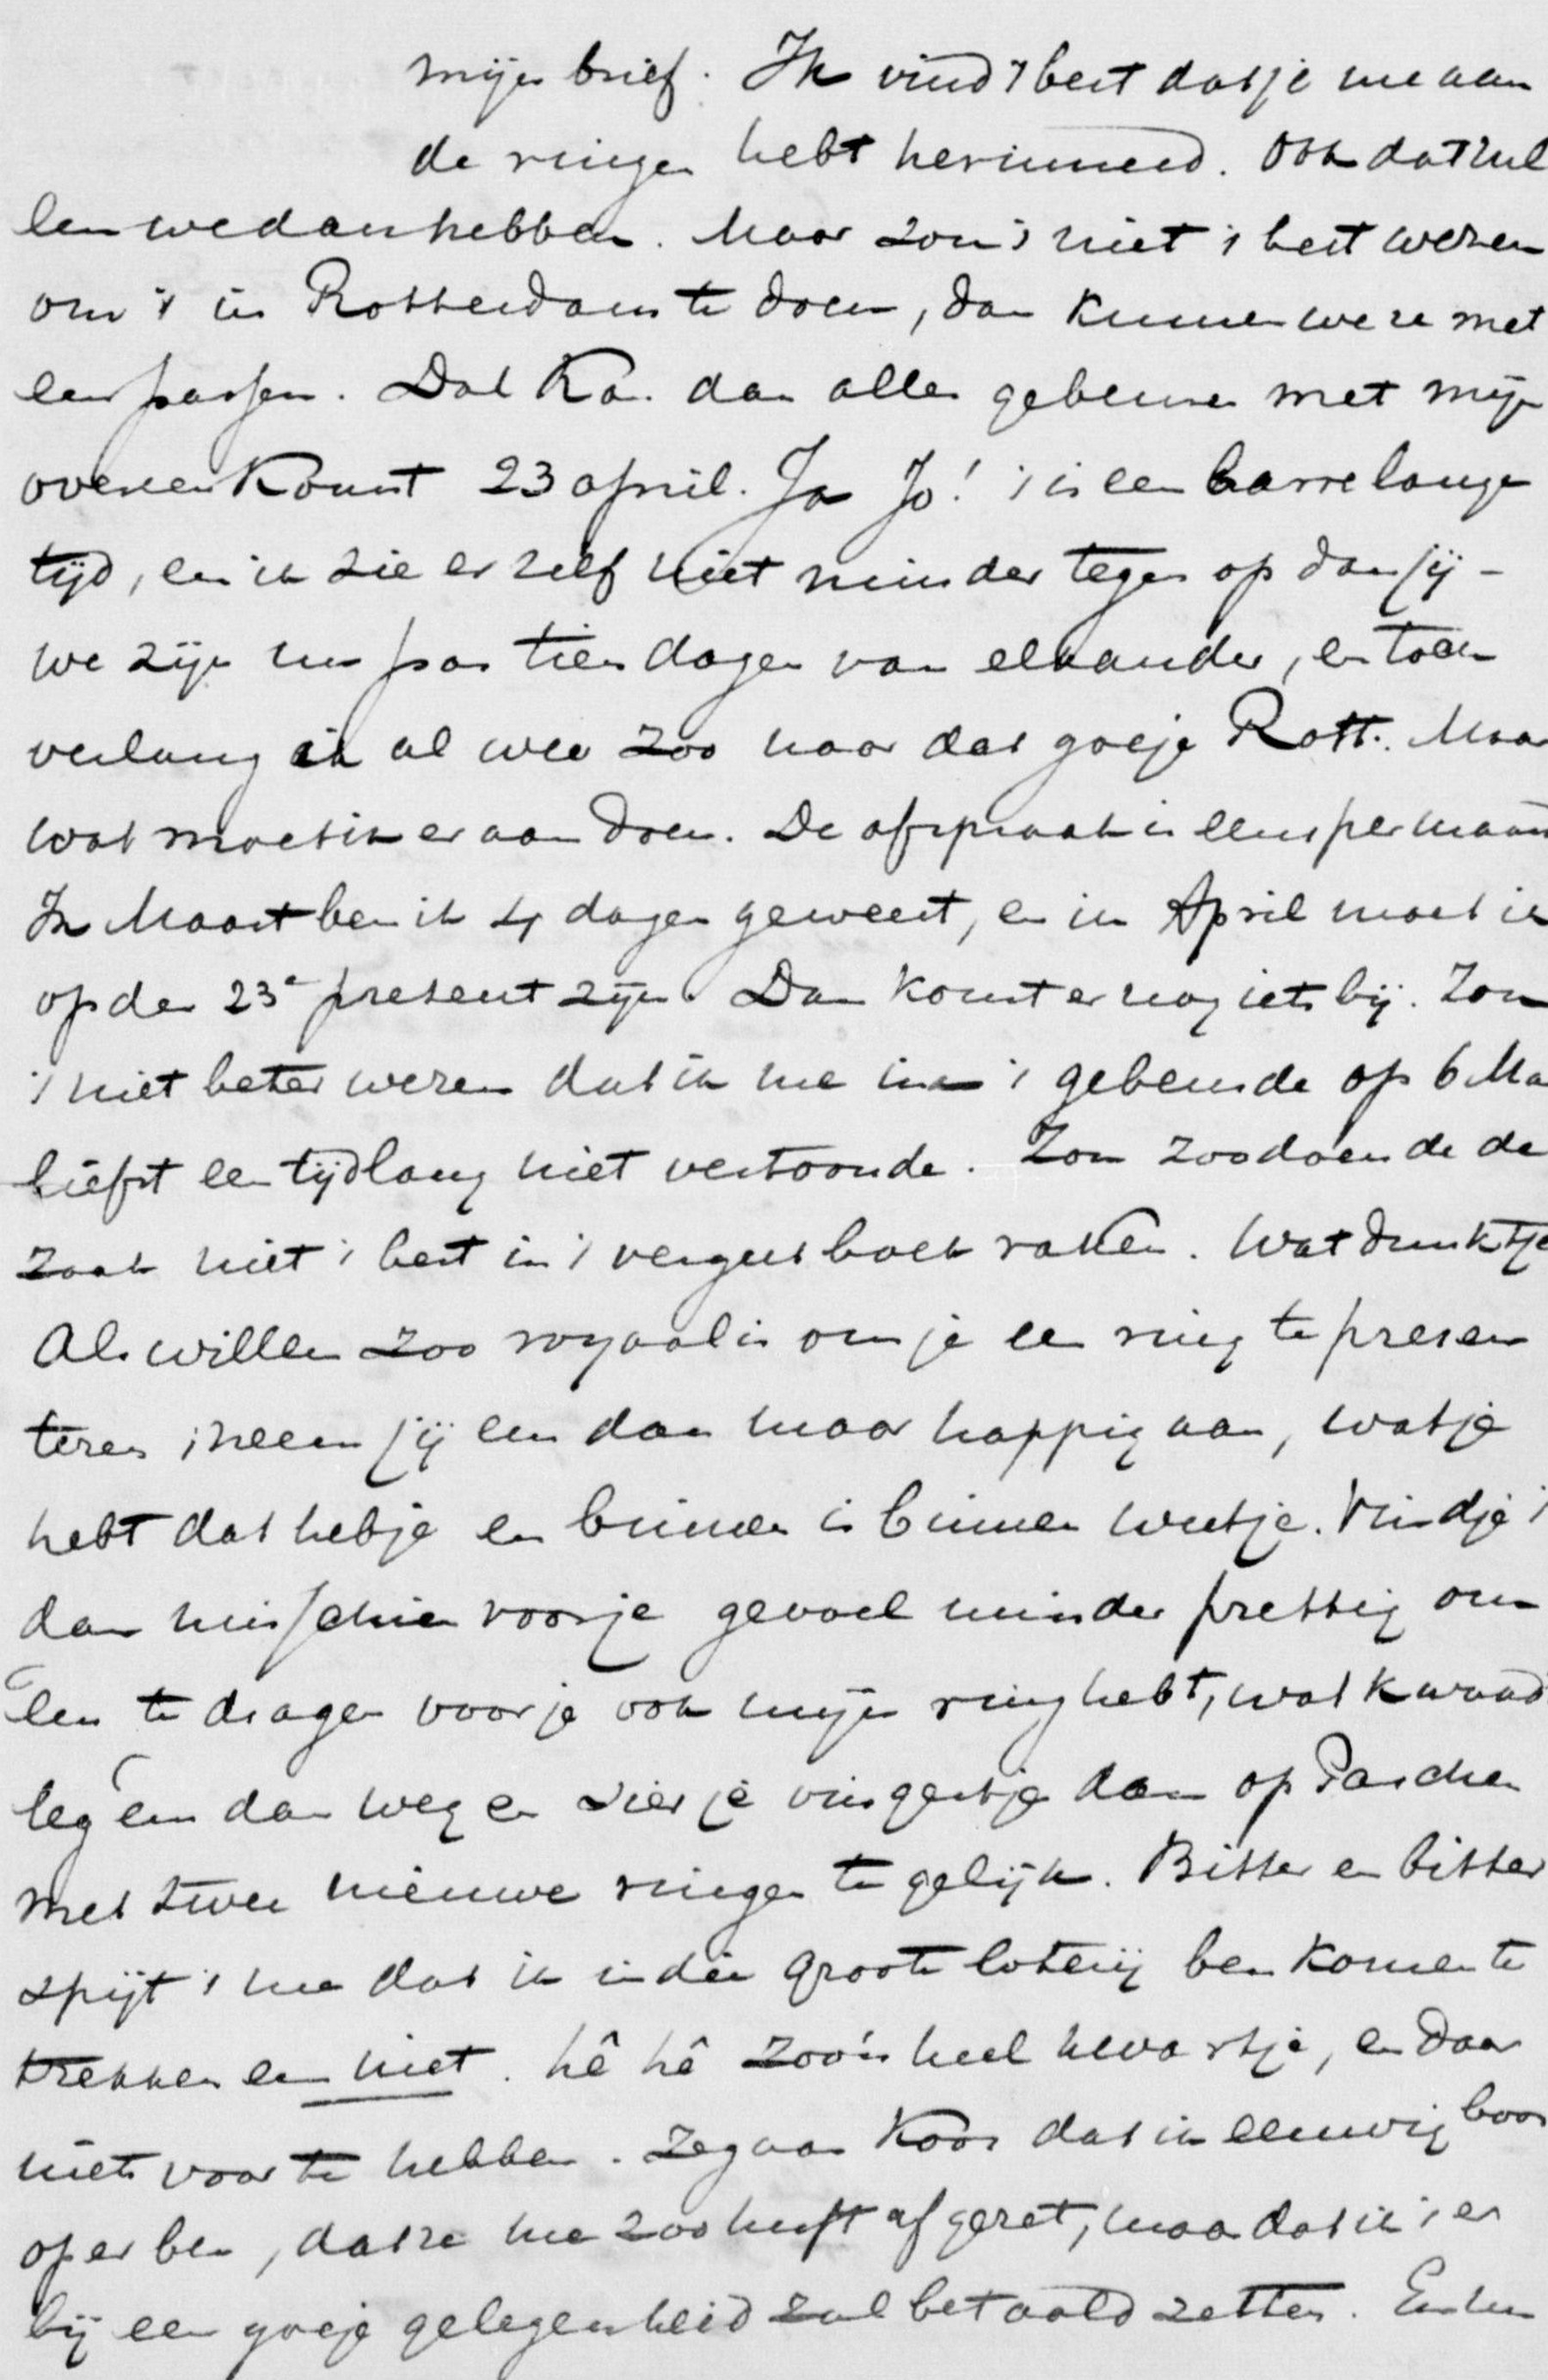 mijn brief. Ik vind 't best dat je me aan
de ringen hebt herinnerd. Ook dat zul
len we dan hebben. Maar zou 't niet 't best wezen
om 't in Rotterdam te doen, dan kunnen we ze met
een passen. Dat kan dan alles gebeuren met mijn
overkomst 23 april. Ja Jo! 't is een barre lange
tijd, en ik zie er zelf niet minder tegen op dan jij -
we zijn nu pas tien dagen van elkander, en toch
verlang ik al weer zoo naar dat goeje Rott. Maar
wat moet ik er aan doen. De afspraak is eens per maand
In Maart ben ik 4 dagen geweest, en in April moet ik
op den 23e present zijn. Dan komt er nog iets bij. Zou
't niet beter wezen dat ik me na 't gebeurde op 6 Ma
liefst een tijdlang niet vertoonde. Zou zoodoende de
zaak niet 't best in 't vergeetboek raken. Wat dunkt je
Als Willem zoo royaal is om je een ring te presen
teren, neem jij em dan maar happig aan, wat je
hebt dat heb je en binnen is binnen weet je. Vind je 't
dan misschien voor je gevoel minder prettig om
em te dragen voor je ook mijn ring hebt, wat kwaad
leg em dan weg en sier je vingertje dan op Paschen
met twee nieuwe ringen te gelijk. Bitter en bitter
spijt 't me dat ik in die groote loterij ben komen te
trekken een niet. hê hê zoo'n heel kwartje, en daar
niets voor te hebben. Zeg aan Koos dat ik eeuwig boos
op er ben, dat ze me zoo heeft afgezet, maar dat ik 't er
bij een goeje gelegenheid zal betaald zetten. En nu